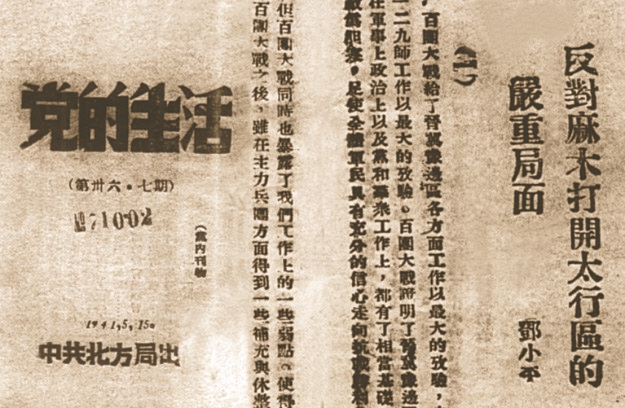 反對麻木打開太行區的
嚴重局面
鄧小平
(一)
百團大戰給了晉冀豫邊區各方面工作以最大的攷驗,
一二九師工作以最大的攷驗。百團大戰證明了晉冀豫邊
在軍事上政治上以及黨和羣衆工作上,都有了相當基礎
足使全體軍民具有充分的信心走向抗戰勝利
但百團大戰同時也暴露了我們工作上的一些弱點。使得
百團大戰之後,雖在主力兵團方面得到一些補充與休整
党的生活
(第卅六·七期)
№71002
(黨內刊物)
1941,5,15。
中共北方局出